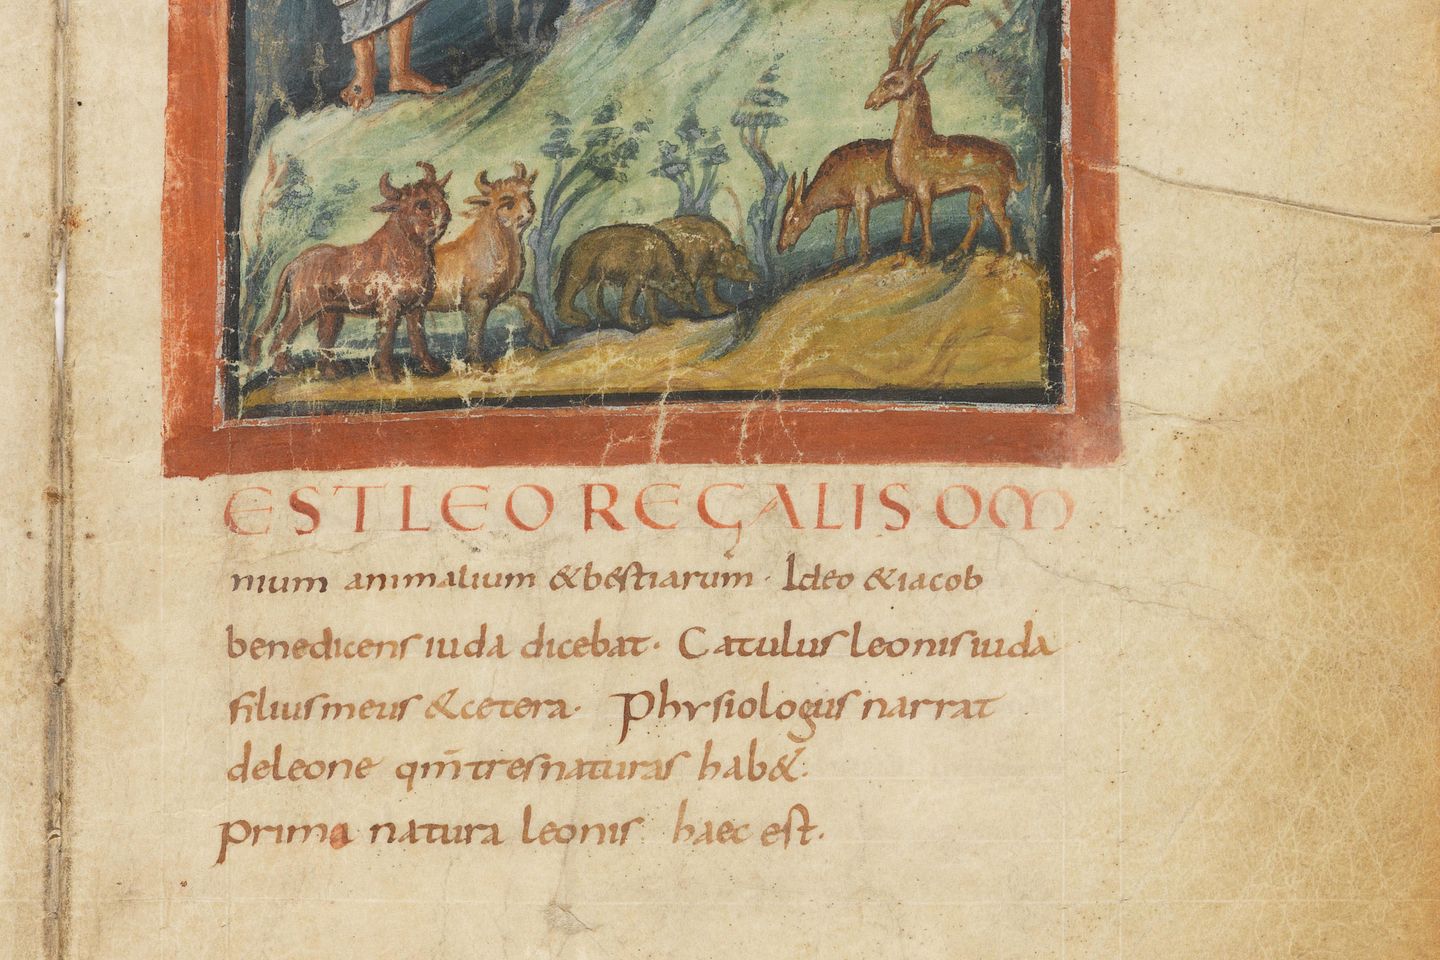 EST LEO REGALIS OM
nium animalium &bestiarum· Ideo &iacob
benedicens iuda dicebat· Catulus leonis iuda
filius meus &cetera· Physiologus narrat
deleone qm̄ tres naturas hab&:
prima natura leonis haec est·